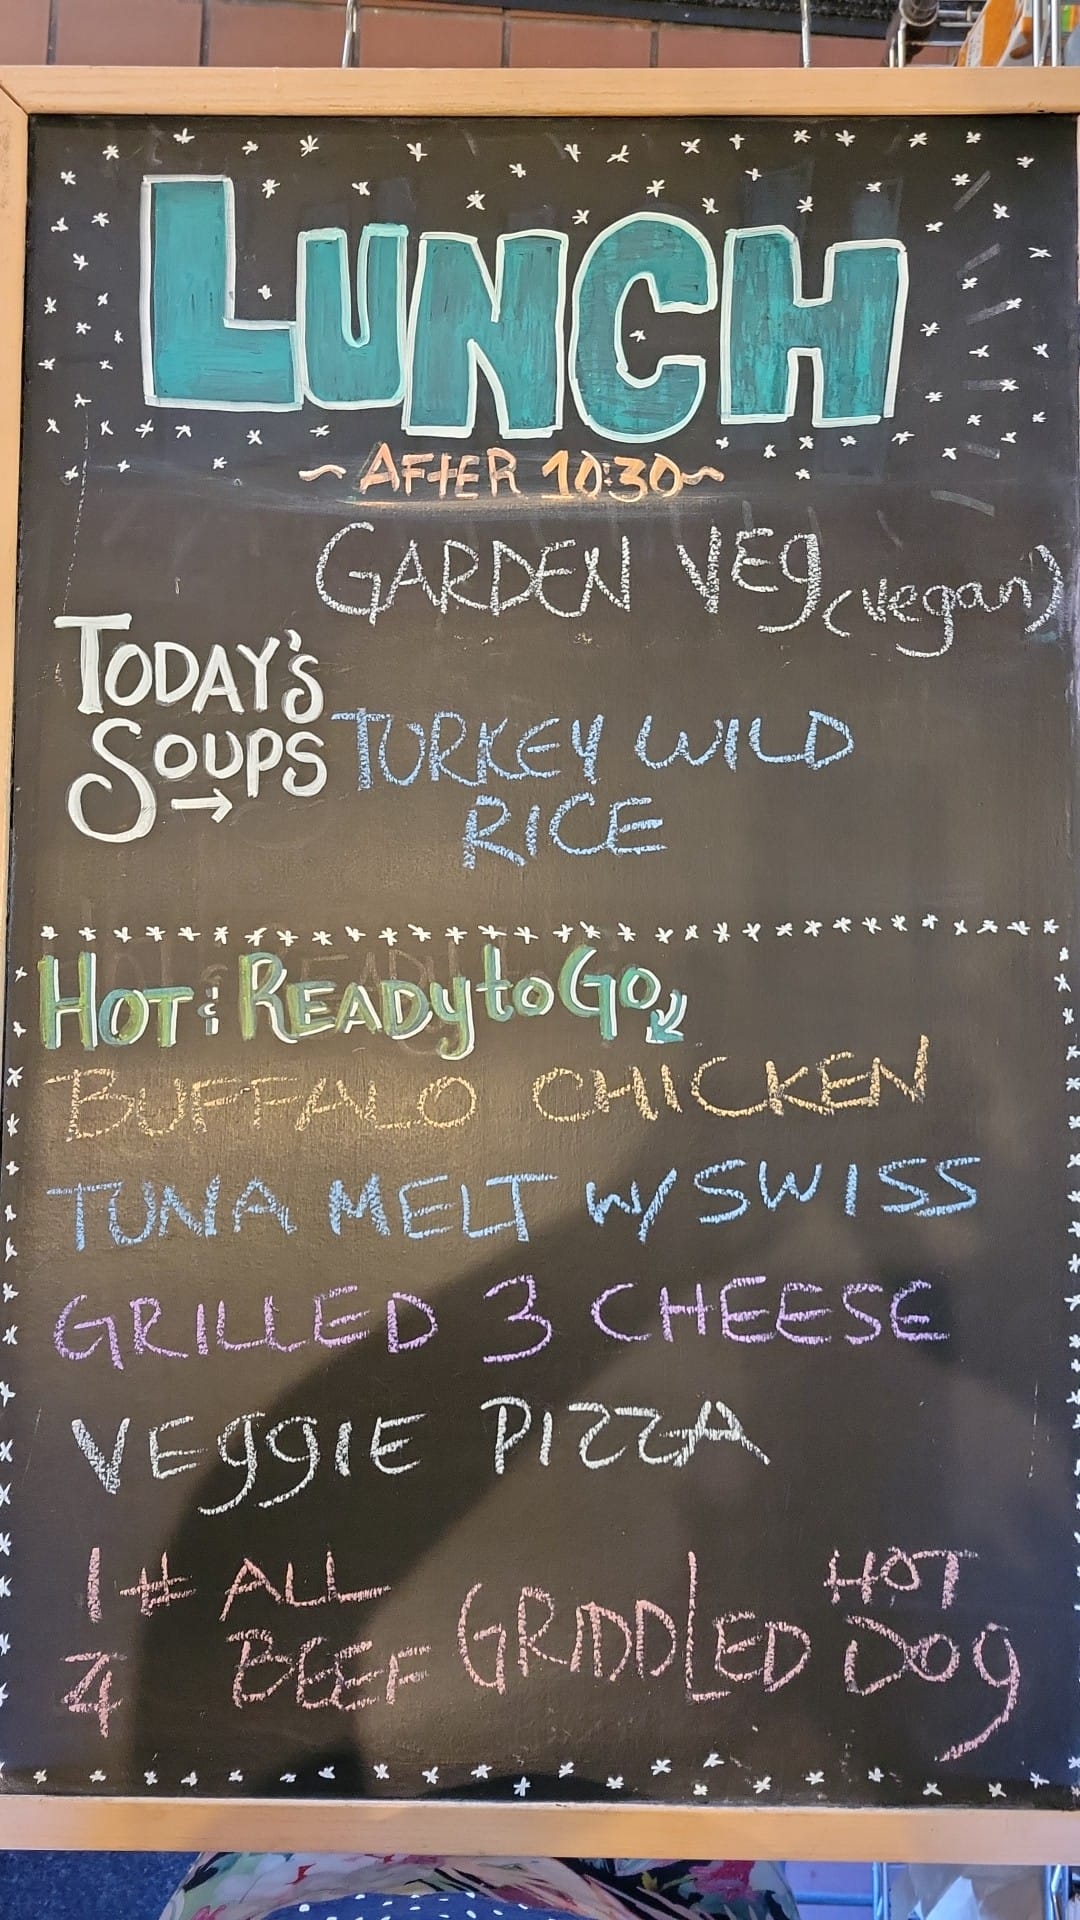 LUNCH
~AFTER 10:30~
GARDEN VEg (vegan)
TODAY'S
SOUPS →
TURKEY WILD
RICE
HOT & READy to GO
BUFFALO CHICKEN
TUNA MELT W/ SWISS
GRILLED 3 CHEESE
VEggIE PIZZA
1/4 # ALL BEEF GRIDDLED HOT DOg